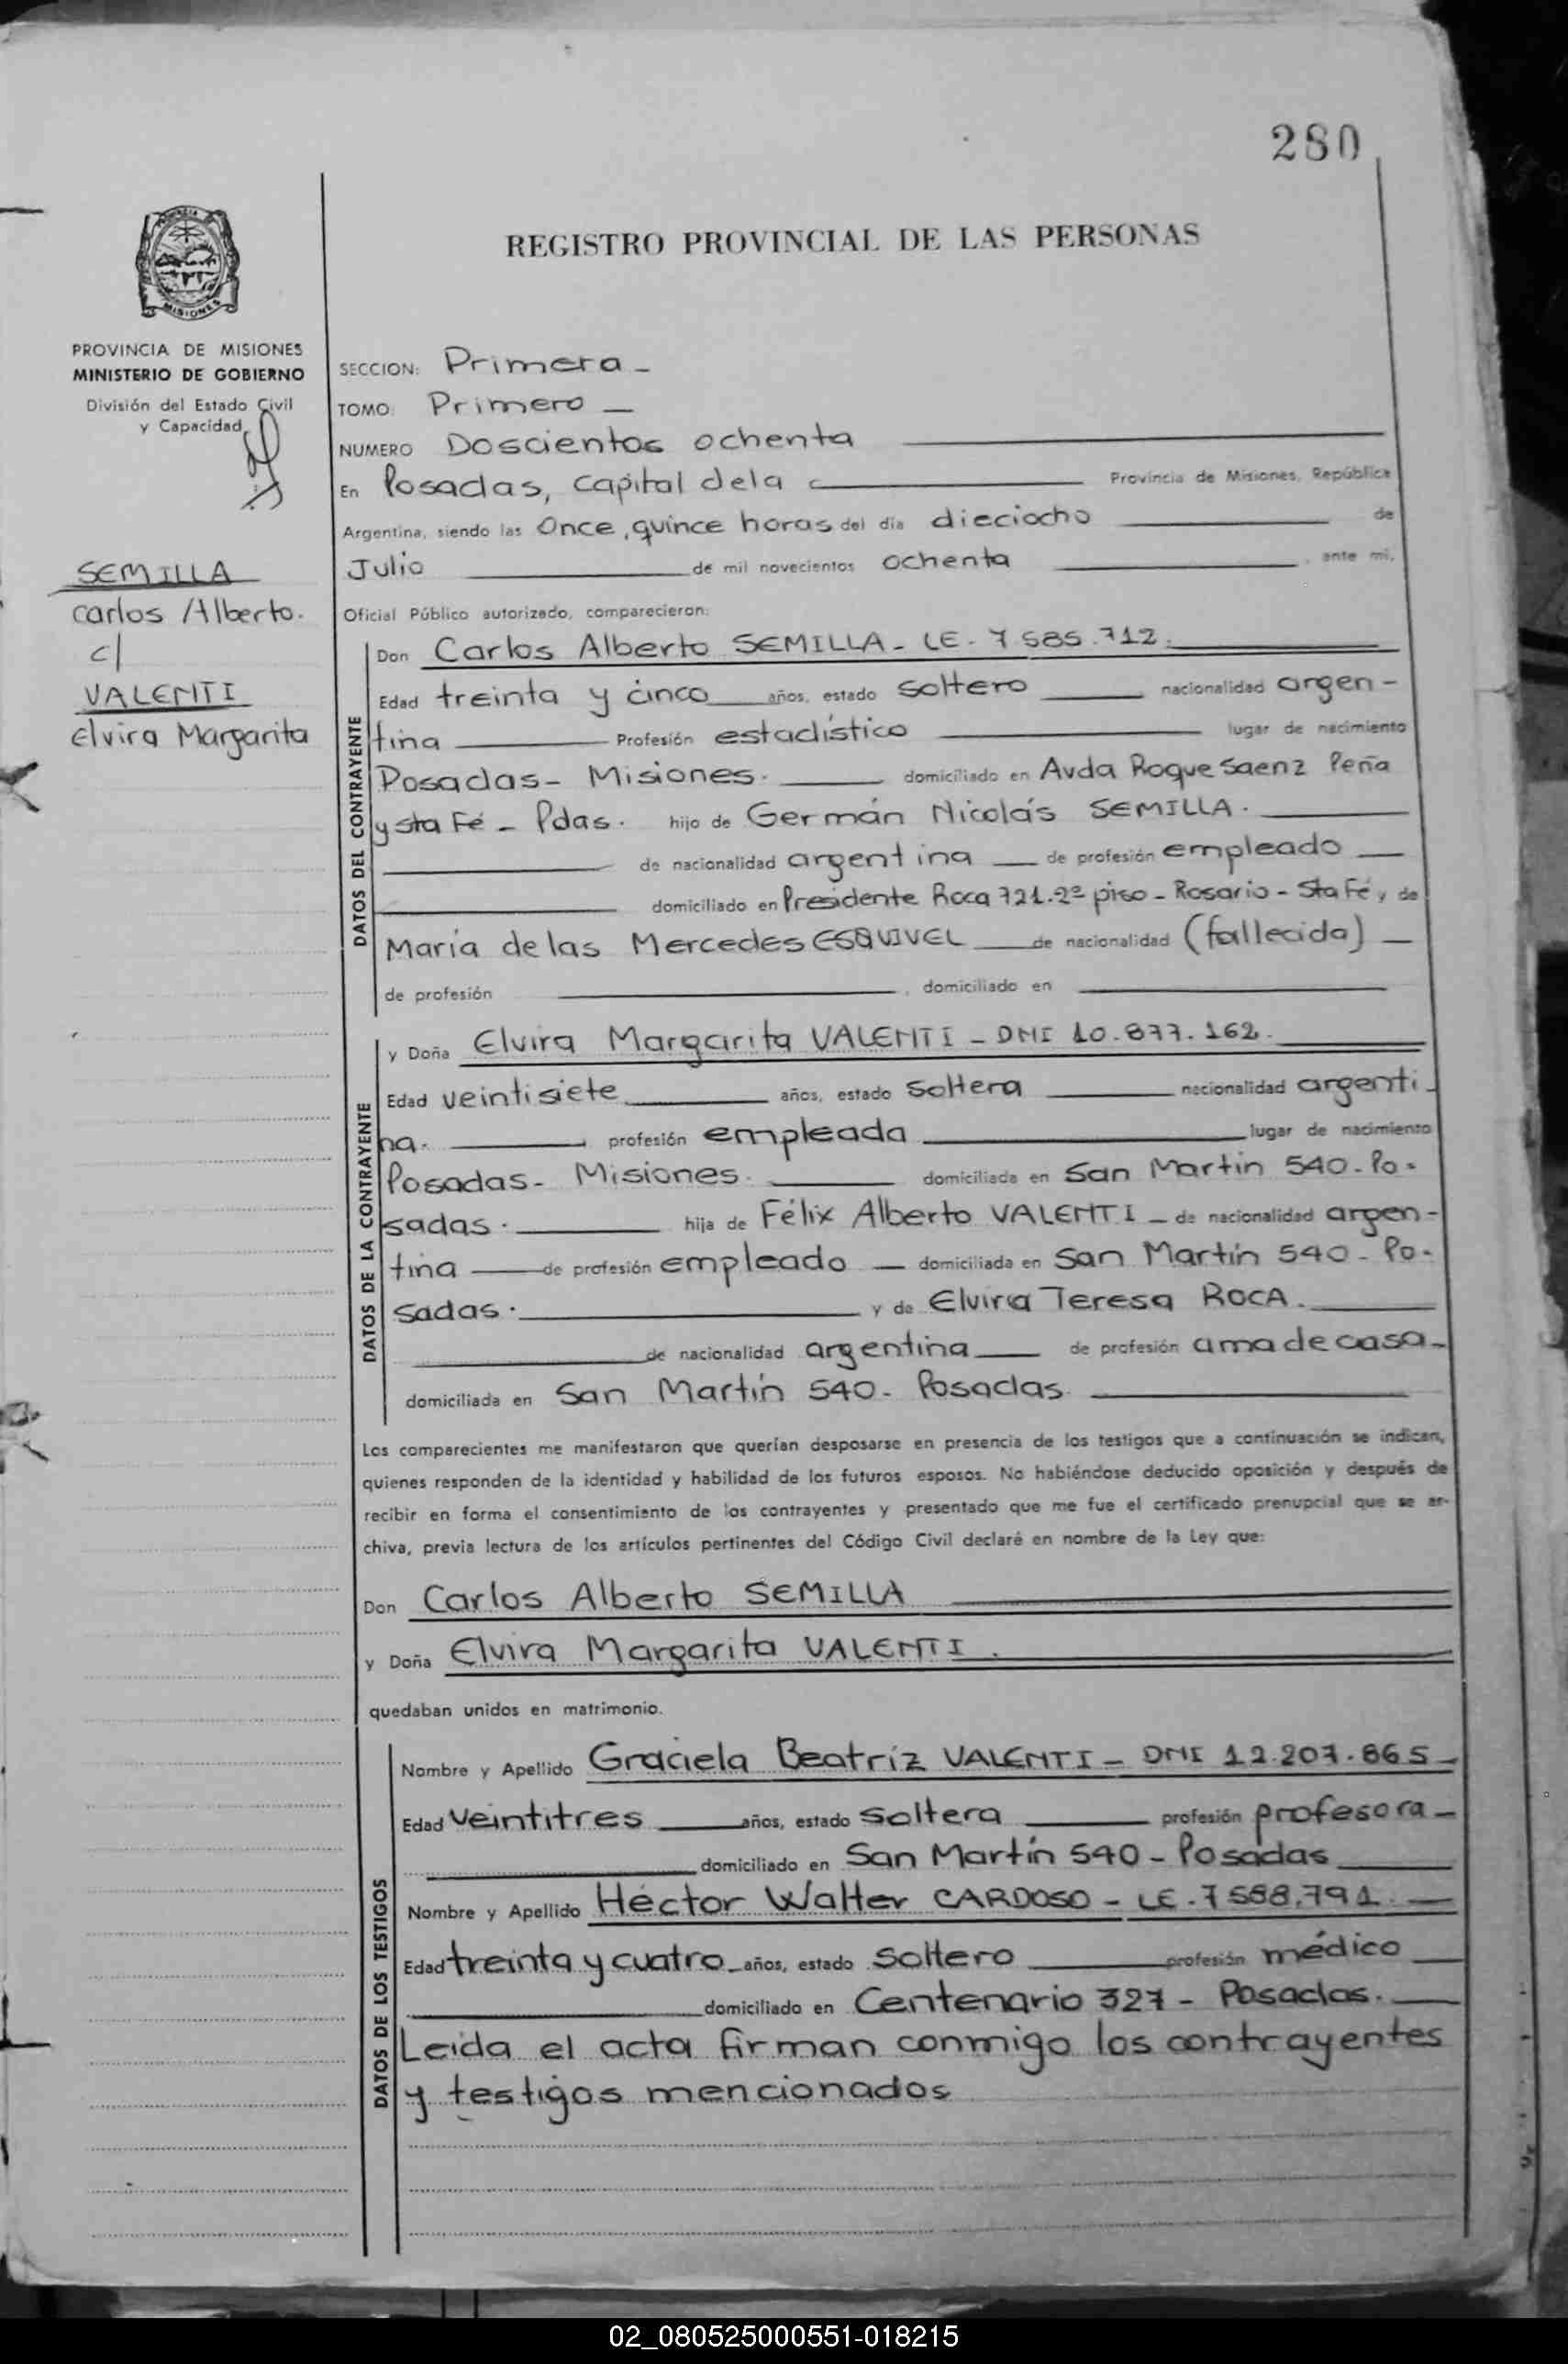 280
REGISTRO PROVINCIAL DE LAS PERSONAS
PROVINCIA DE MISIONES
MINISTERIO DE GOBIERNO
División del Estado Civil
y Capacidad
SEMILLA
Carlos Alberto.
c/
VALENTI
Elvira Margarita
SECCION: Primera -
TOMO: Primero -
NUMERO Doscientos ochenta
En Posadas, capital dela Provincia de Misiones, República
Argentina, siendo las Once, quince horas del día dieciocho de
Julio de mil novecientos ochenta, ante mi,
Oficial Público autorizado, comparecieron:
DATOS DEL CONTRAYENTE
Don Carlos Alberto SEMILLA - LE - 7 585.712.
Edad treinta y cinco años, estado soltero nacionalidad argen-
tina Profesión estadístico lugar de nacimiento
Posadas - Misiones. domiciliado en Avda Roque Saenz Peña
y Sta Fé - Pdas. hijo de Germán Nicolás SEMILLA.
de nacionalidad argentina de profesión empleado
domiciliado en Presidente Roca 721-2º piso - Rosario - Sta Fé y de
María de las Mercedes ESQUIVEL de nacionalidad (fallecida)
de profesión, domiciliado en
DATOS DE LA CONTRAYENTE
y Doña Elvira Margarita VALENTI - DNI 10.877.162.
Edad veintisiete años, estado soltera nacionalidad argenti-
na. profesión empleada lugar de nacimiento
Posadas - Misiones. domiciliada en San Martin 540 - Po-
sadas. hija de Félix Alberto VALENTI - de nacionalidad argen-
tina de profesión empleado domiciliada en San Martín 540 - Po-
sadas. y de Elvira Teresa ROCA.
de nacionalidad argentina de profesión ama de casa-
domiciliada en San Martín 540 - Posadas.
Los comparecientes me manifestaron que querían desposarse en presencia de los testigos que a continuación se indican,
quienes responden de la identidad y habilidad de los futuros esposos. No habiéndose deducido oposición y después de
recibir en forma el consentimiento de los contrayentes y presentado que me fue el certificado prenupcial que se ar-
chiva, previa lectura de los artículos pertinentes del Código Civil declaré en nombre de la Ley que:
Don Carlos Alberto SEMILLA
y Doña Elvira Margarita VALENTI.
quedaban unidos en matrimonio.
DATOS DE LOS TESTIGOS
Nombre y Apellido Graciela Beatriz VALENTI - DNI 12.207.865-
Edad Veintitres años, estado soltera profesión profesora -
domiciliado en San Martín 540 - Posadas
Nombre y Apellido Héctor Walter CARDOSO - LE - 7 558.791.
Edad treinta y cuatro años, estado soltero profesión médico
domiciliado en Centenario 327 - Posadas.
Leída el acta firman conmigo los contrayentes
y testigos mencionados
02_080525000551-018215